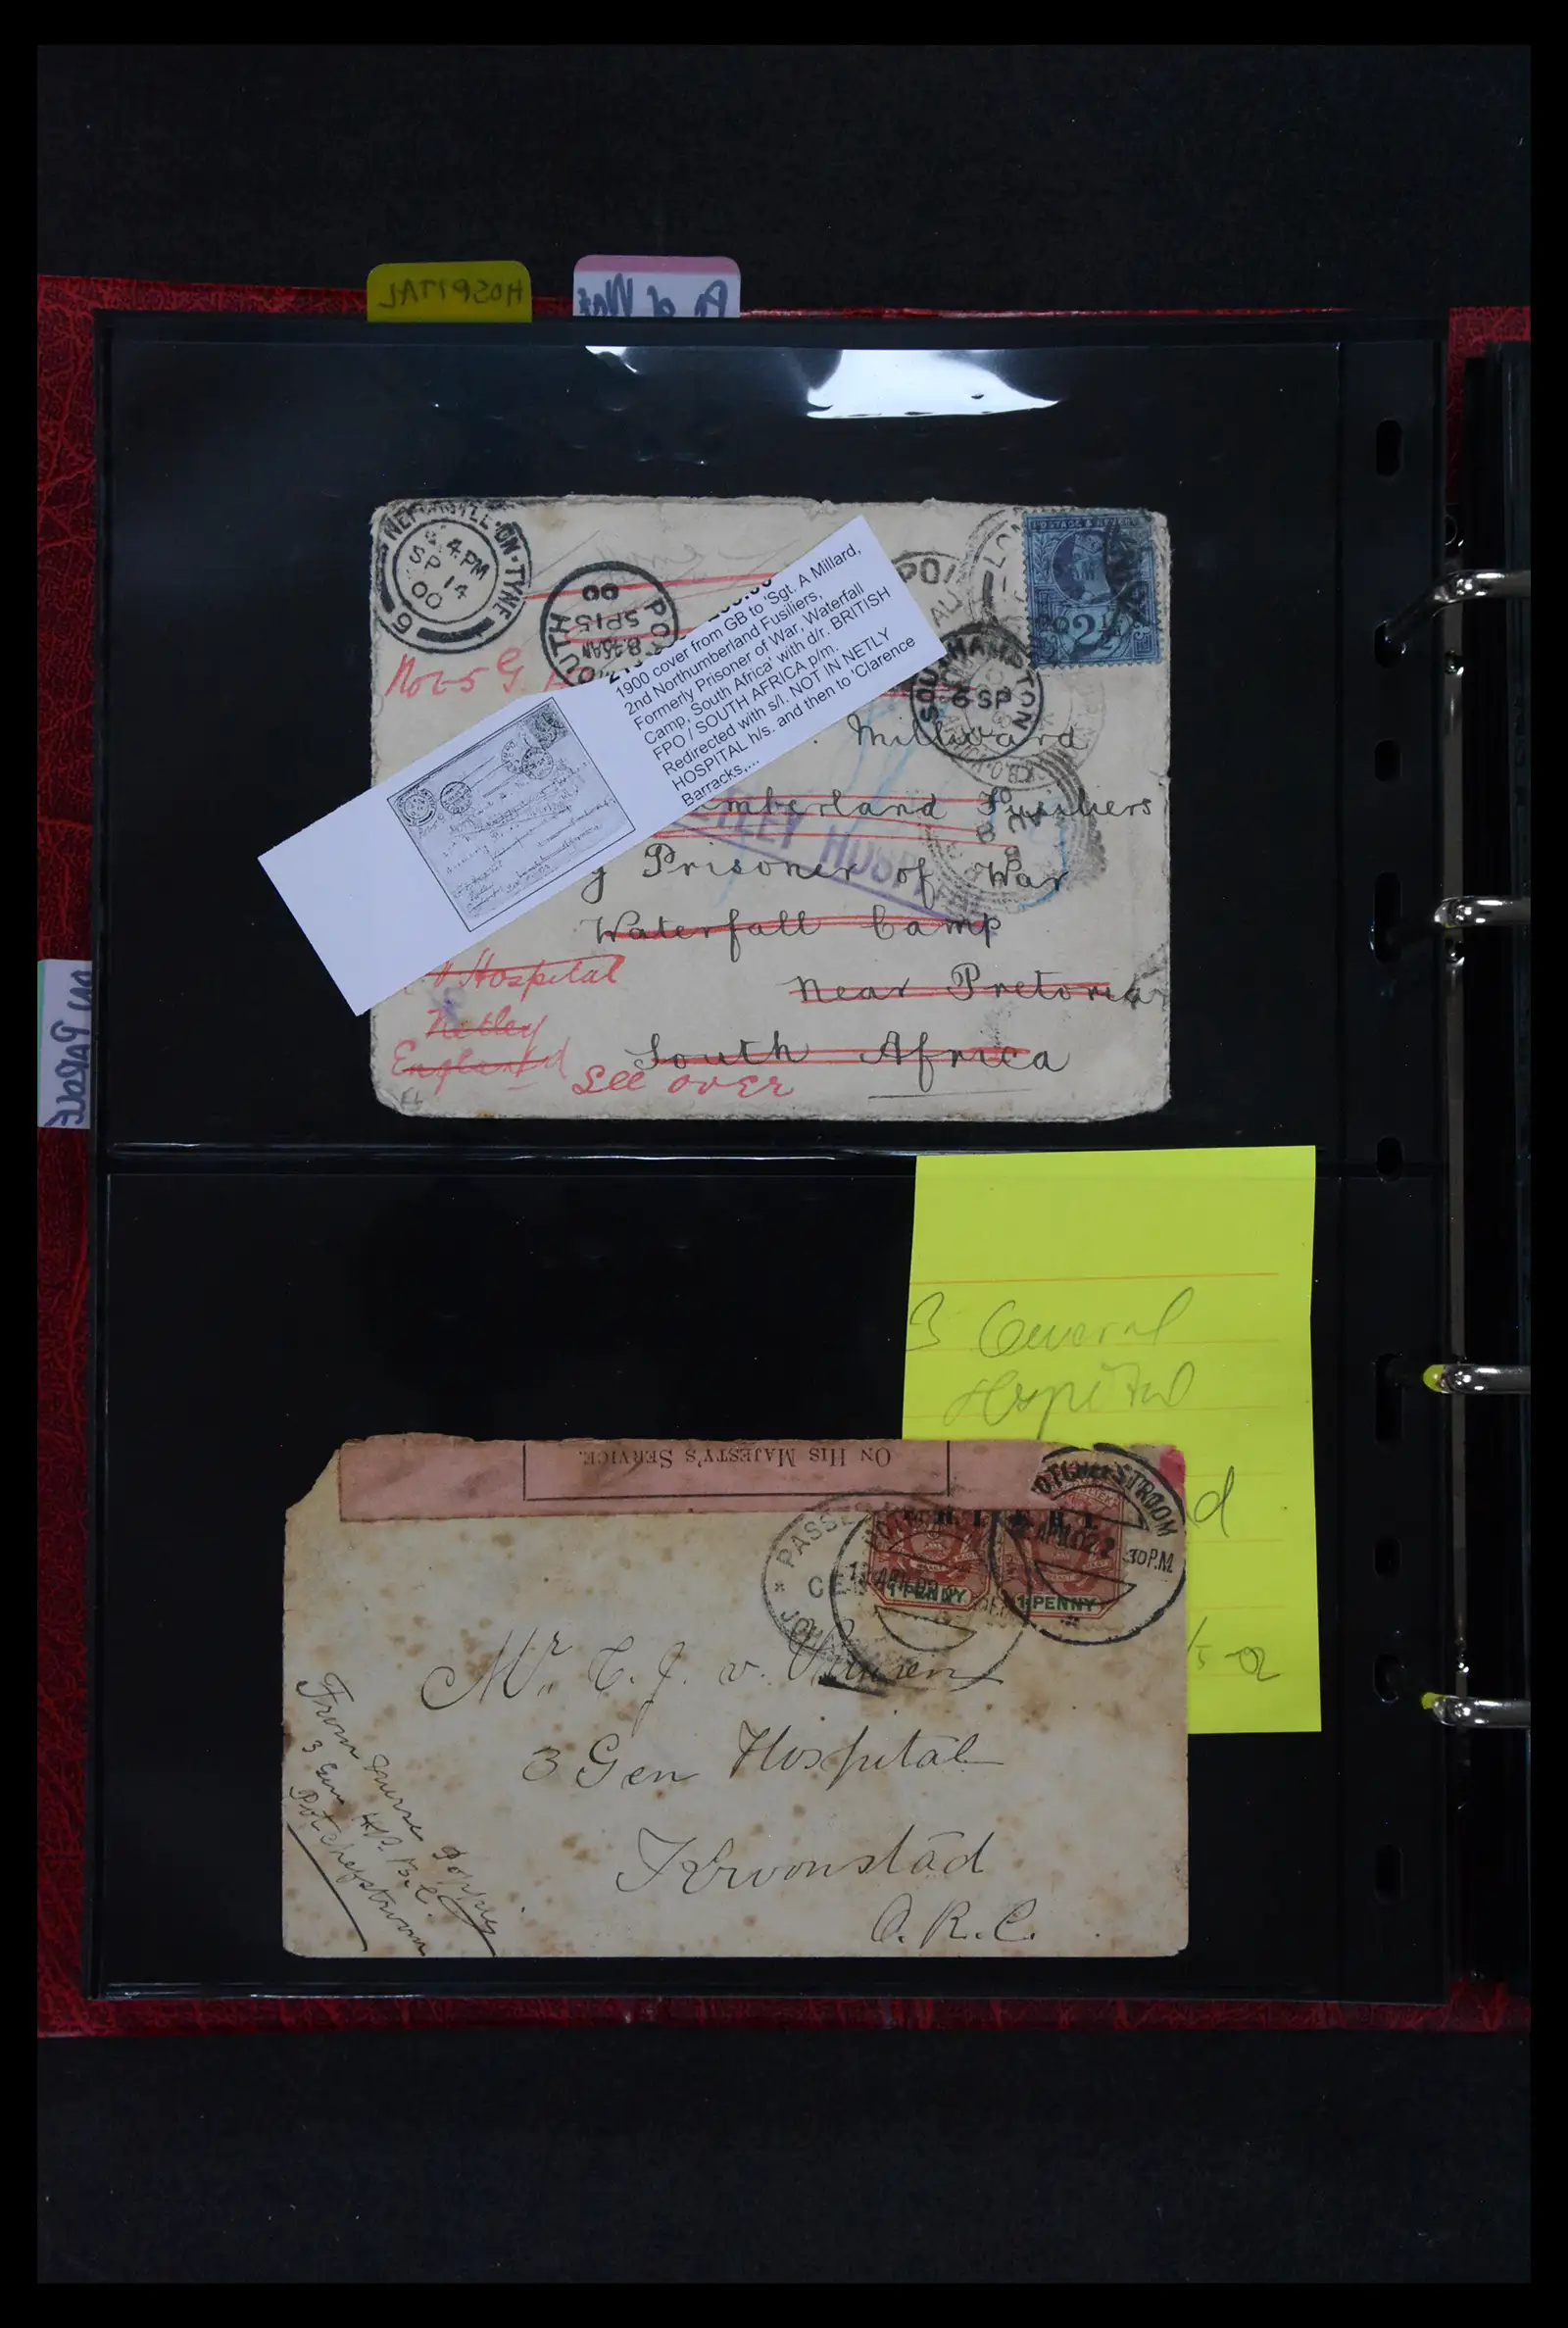 HOSPITAL
P of War
NEWCASTLE-ON-TYNE
4.PM
SP 14
00
6
8.45AM
SP15
00
2½
SOUTHAMPTON
SP
1900 cover from GB to 'Sgt. A Millard,
2nd Northumberland Fusiliers,
Formerly Prisoner of War, Waterfall
Camp, South Africa' with d/r. BRITISH
FPO / SOUTH AFRICA p/m.
Redirected with s/l. NOT IN NETLY
HOSPITAL h/s. and then to 'Clarence
Barracks,...
Millward
umberland Fusiliers
NETLEY HOSPITAL
y Prisoner of War
Waterfall Camp
Near Pretoria
South Africa
Hospital
Netley
England
See over
3 General
Hospital
d
/5-02
ON HIS MAJESTY'S SERVICE.
POTCHEFSTROOM
30P.M.
PASSED
1 PENNY
1 PENNY
Mr. C. J. v.
3 Gen Hospital
Kroonstad
O. R. C.
From Nurse
3 Gen
Potchefstroom